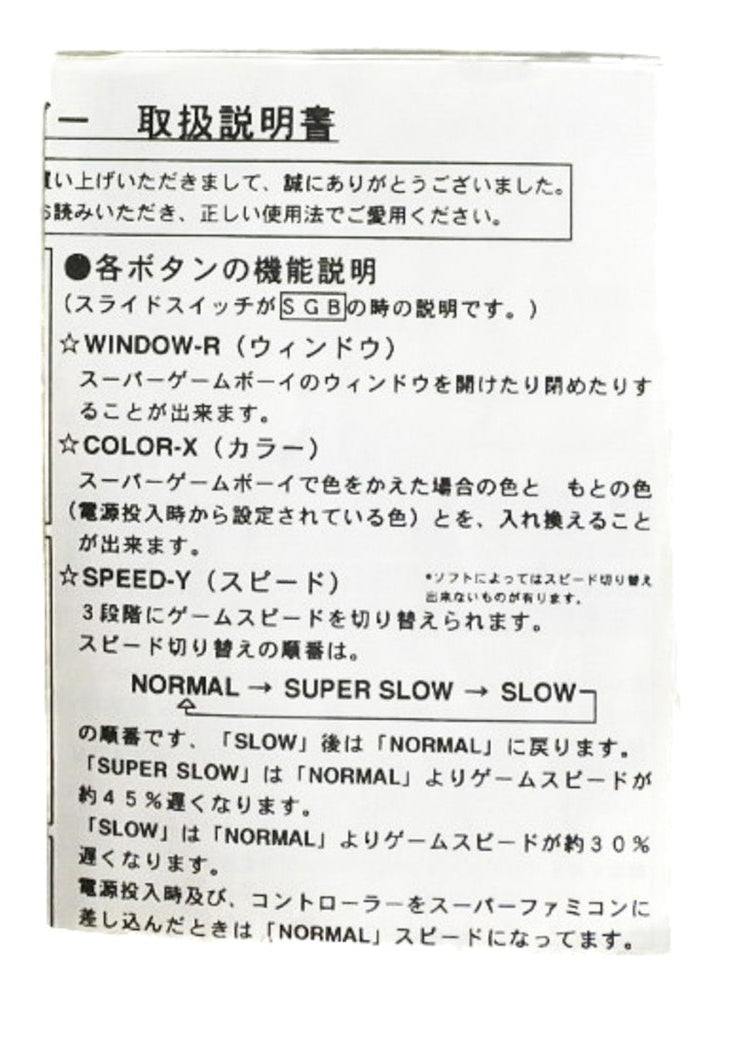 ー 取扱説明書
い上げいただきまして、誠にありがとうございました。
読みいただき、正しい使用法でご愛用ください。
●各ボタンの機能説明
(スライドスイッチがSGBの時の説明です。)
☆WINDOW-R(ウィンドウ)
スーパーゲームボーイのウィンドウを開けたり閉めたりす
ることが出来ます。
☆COLOR-X(カラー)
スーパーゲームボーイで色をかえた場合の色と もとの色
(電源投入時から設定されている色)とを、入れ換えること
が出来ます。
☆SPEED-Y(スピード)
*ソフトによってはスピード切り替え
出来ないものが有ります。
3段階にゲームスピードを切り替えられます。
スピード切り替えの順番は。
NORMAL → SUPER SLOW → SLOW
の順番です、「SLOW」後は「NORMAL」に戻ります。
「SUPER SLOW」は「NORMAL」よりゲームスピードが
約45%遅くなります。
「SLOW」は「NORMAL」よりゲームスピードが約30%
遅くなります。
電源投入時及び、コントローラーをスーパーファミコンに
差し込んだときは「NORMAL」スピードになってます。